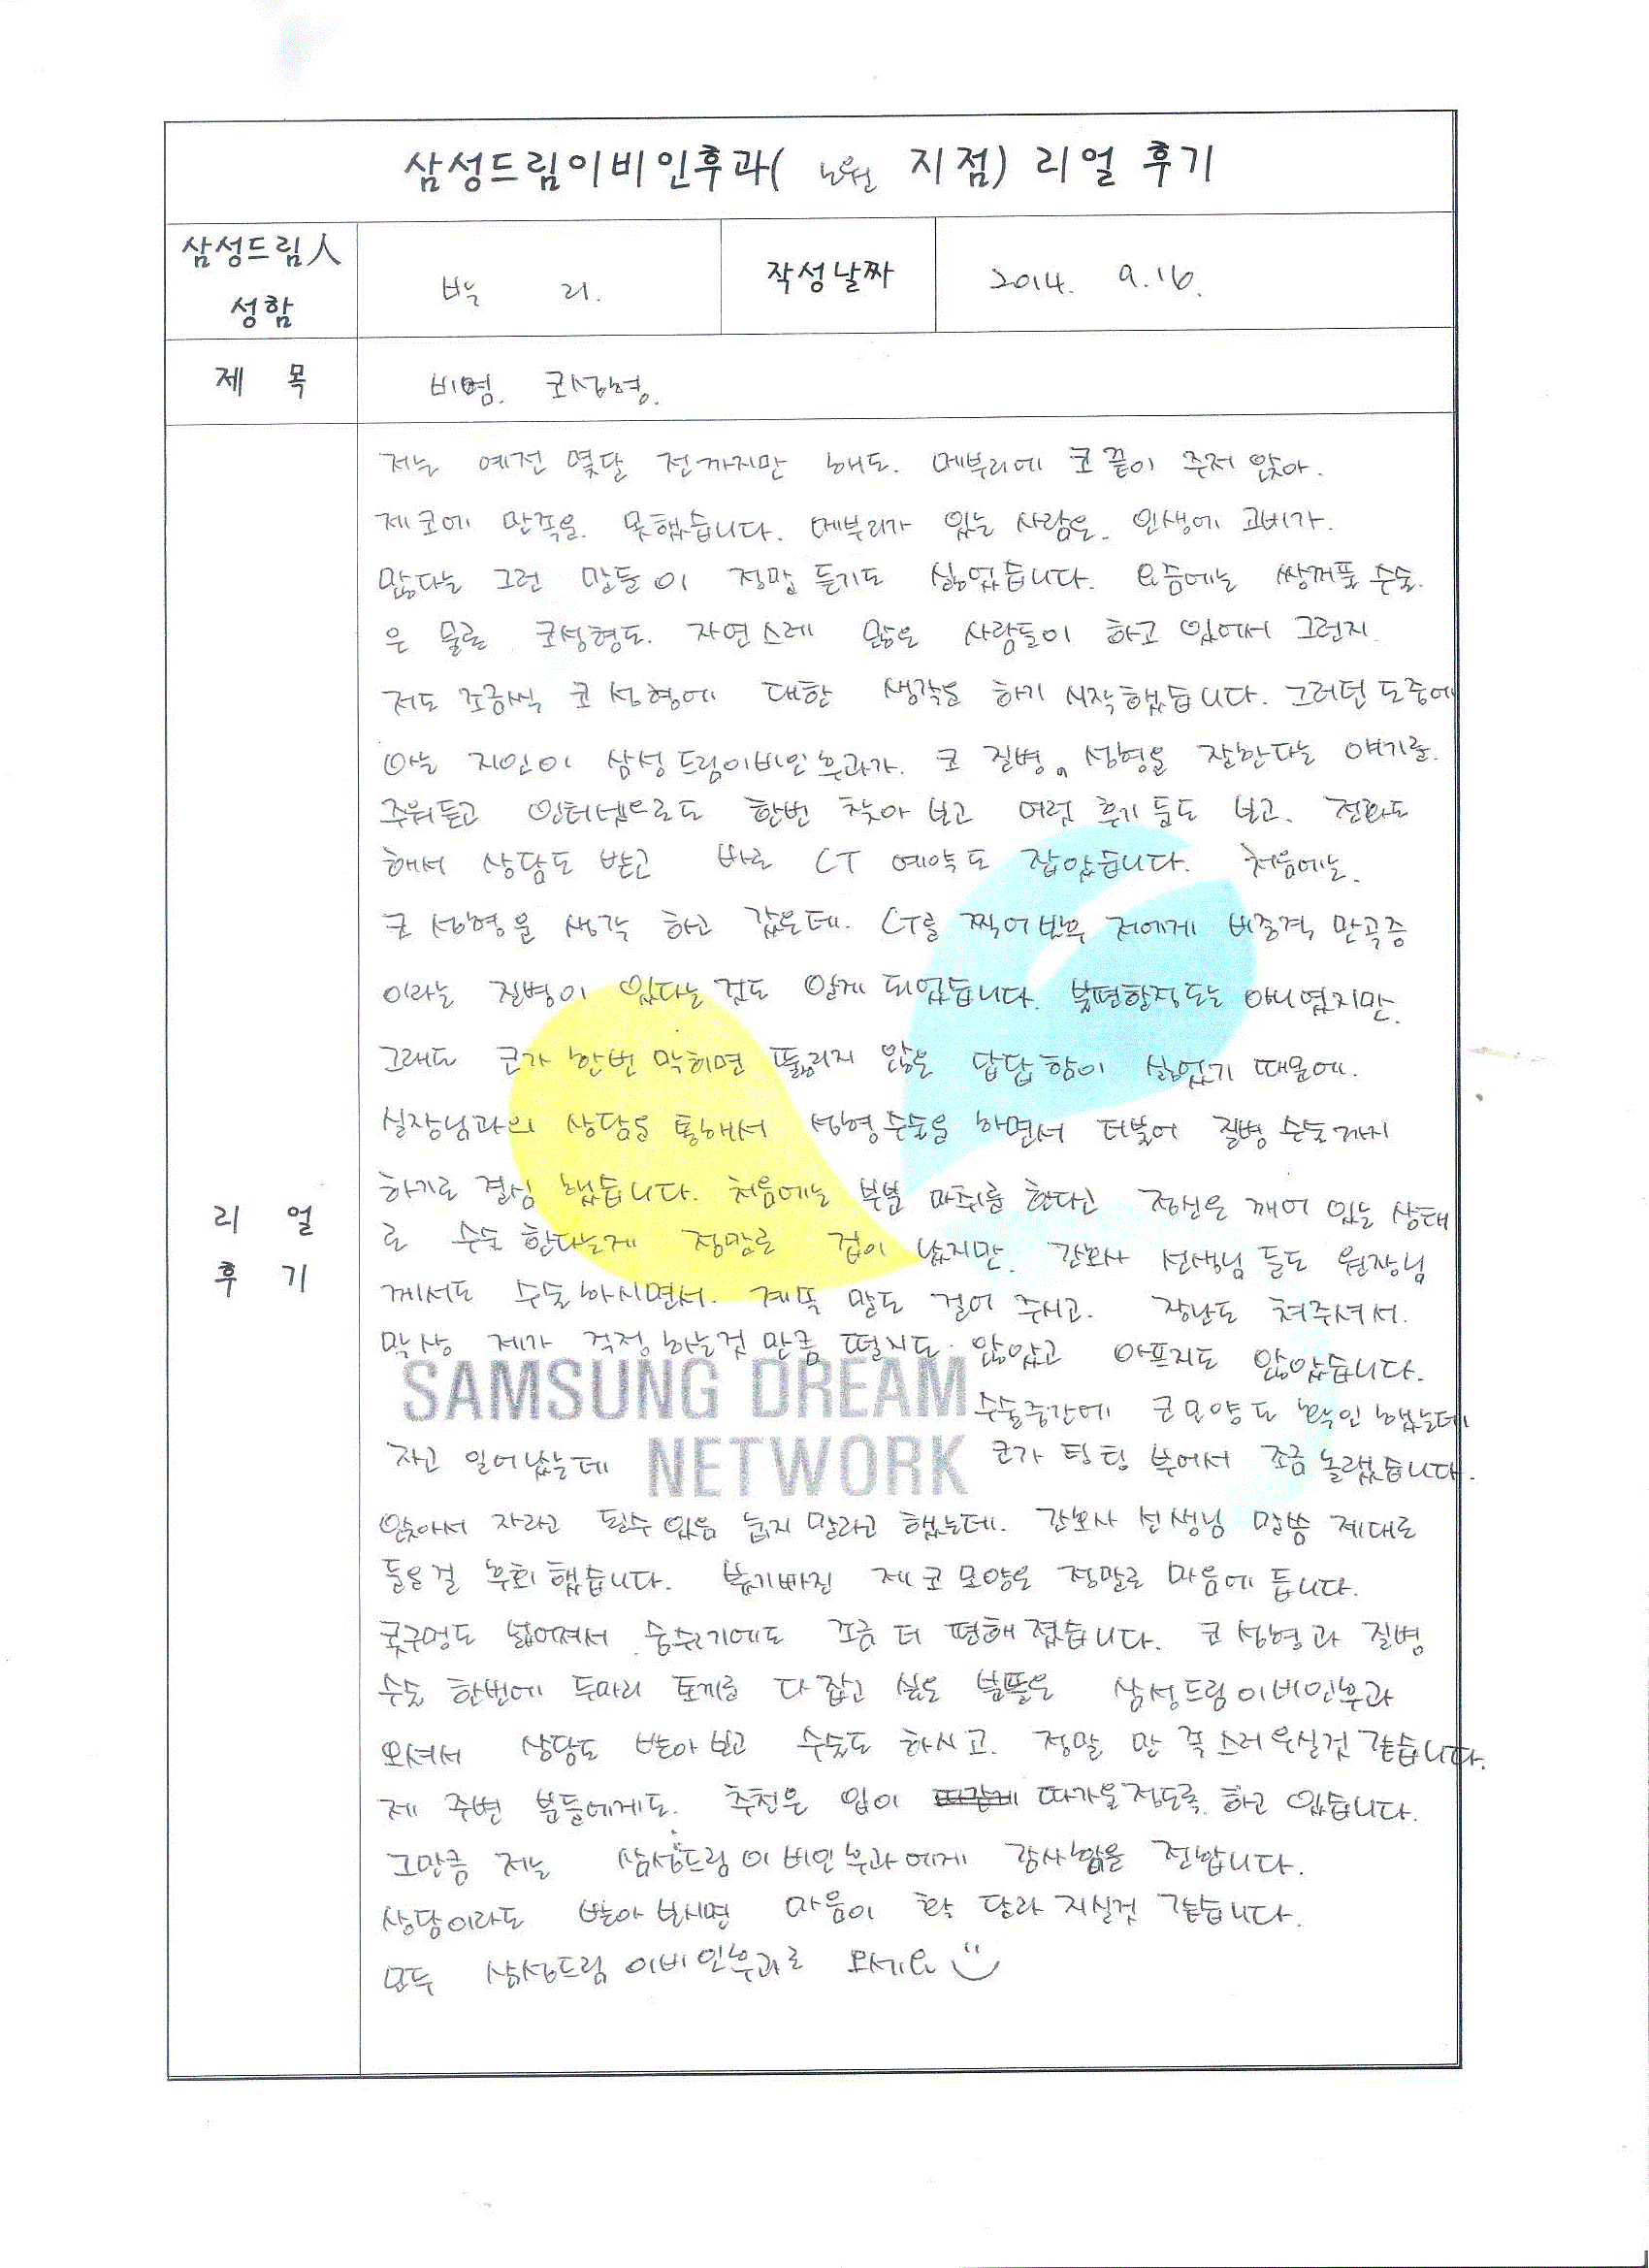 삼성드림이비인후과( 노원 지점) 리얼 후기
삼성드림人
성함
리.
작성날짜
2014. 9.16.
제 목
비염. 코성형.
저는 예전 몇달 전까지만 해도. 메부리에 코끝이 주저 앉아.
제코에 만족을. 못했습니다. 메부리가 있는 사람은. 인생에 고비가.
많다는 그런 말들이 정말 듣기도 싫었습니다. 요즘에는 쌍꺼풀 수술.
은 물론 코성형도. 자연스레 많은 사람들이 하고 있어서 그런지.
저도 조금씩 코 성형에 대한 생각을 하기 시작했습니다. 그러던 도중에
아는 지인이 삼성드림이비인후과가. 코 질병, 성형을 잘한다는 얘기를.
주워듣고 인터넷으로도 한번 찾아 보고 여럿 후기 들도 보고. 전화도
해서 상담도 받고 바로 CT 예약도 잡았습니다. 처음에는.
코 성형을 생각 하고 갔는데. CT를 찍어본후 저에게 비중격 만곡증
이라는 질병이 있다는 것도 알게 되었습니다. 불편할정도는 아니였지만.
그래도 코가 한번 막히면 뚫리지 않은 답답함이 싫었기 때문에.
실장님과의 상담을 통해서 성형수술을 하면서 더불어 질병 수술까지
하기로 결심 했습니다. 처음에는 부분 마취를 한다고 정신은 깨어 있는 상태
로 수술 한다는게 정말로 겁이 났지만. 간호사 선생님 들도 원장님
께서도 수술하시면서. 계속 말도 걸어 주시고. 장난도 쳐주셔서.
막상 제가 걱정하는것 만큼 떨지도. 않았고 아프지도 않았습니다.
SAMSUNG DREAM
NETWORK
수술중간에 코모양도 확인 했는데
자고 일어났는데 코가 팅팅 부어서 조금 놀랬습니다.
앉아서 자라고 될수있음 눕지 말라고 했는데. 간호사 선생님 말씀 제대로
들을걸 후회 했습니다. 붓기빠진 제 코 모양은 정말로 마음에 듭니다.
콧구멍도 넓어져서 숨쉬기에도 조금 더 편해 졌습니다. 코 성형과 질병
수술 한번에 두마리 토끼를 다 잡고 싶은 분들은 삼성드림이비인후과
오셔서 상담도 받아보고 수술도 하시고. 정말 만족스러우실것 같습니다.
제 주변 분들에게도. 추천은 입이 따가울정도록. 하고 있습니다.
그만큼 저는 삼성드림이비인후과에게 감사함을 전합니다.
상담이라도 받아 보시면 마음이 확 달라 지실것 같습니다.
모두 삼성드림이비인후과로 오세요
리 얼
후 기